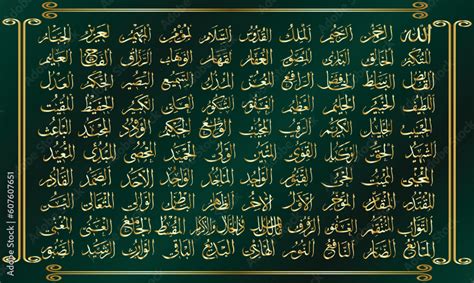 الله الرحمن الرحيم الملك القدوس السلام المؤمن المهيمن العزيز الجبار
المتكبر الخالق البارئ المصور الغفار القهار الوهاب الرزاق الفتاح العليم
القابض الباسط الخافض الرافع المعز المذل السميع البصير الحكم العدل
اللطيف الخبير الحليم العظيم الغفور الشكور العلي الكبير الحفيظ المقيت
الحسيب الجليل الكريم الرقيب المجيب الواسع الحكيم الودود المجيد الباعث
الشهيد الحق الوكيل القوي المتين الولي الحميد المحصي المبدئ المعيد
المحيي المميت الحي القيوم الواجد الماجد الواحد الاحد الصمد القادر
المقتدر المقدم المؤخر الأول الآخر الظاهر الباطن الوالي المتعالي البر
التواب المنتقم العفو الرؤوف مالك الملك ذو الجلال والإكرام المقسط الجامع الغني المغني
المانع الضار النافع النور الهادي البديع الباقي الوارث الرشيد الصبور
Adobe Stock | #607607651